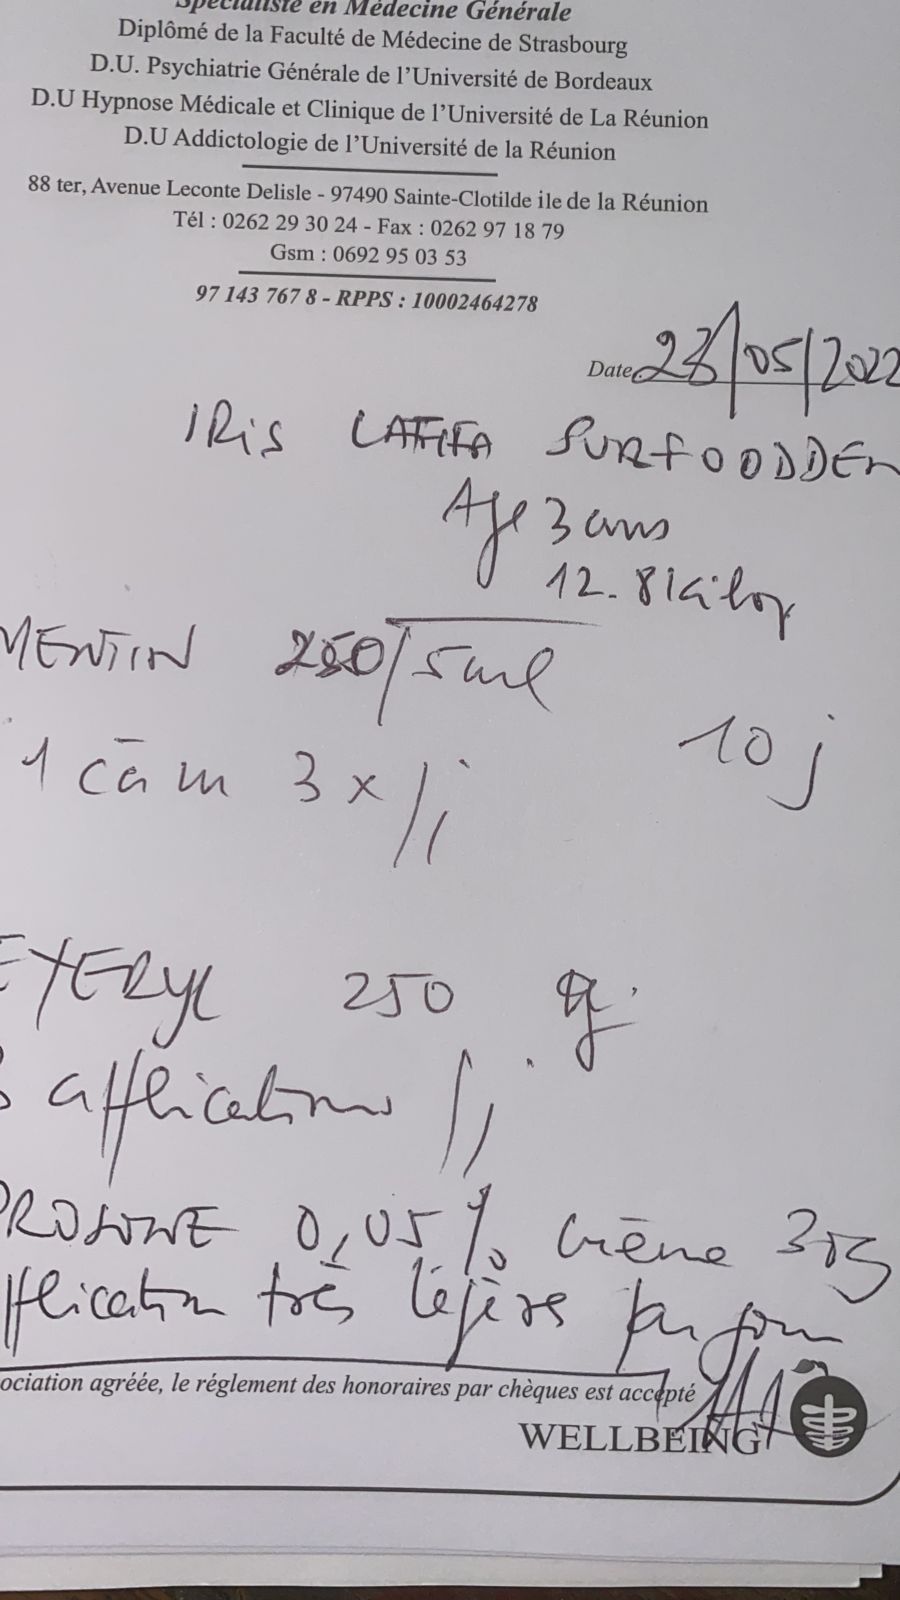 Spécialiste en Médecine Générale
Diplômé de la Faculté de Médecine de Strasbourg
D.U. Psychiatrie Générale de l'Université de Bordeaux
D.U Hypnose Médicale et Clinique de l'Université de La Réunion
D.U Addictologie de l'Université de la Réunion
88 ter, Avenue Leconte Delisle - 97490 Sainte-Clotilde ile de la Réunion
Tél : 0262 29 30 24 - Fax : 0262 97 18 79
Gsm : 0692 95 03 53
97 143 767 8 - RPPS : 10002464278
Date 28/05/2022
IRIS LATIFA SURFOODDEN
Age 3 ans
12.8 kilos
MENTIN 250/5ml
10 j
1 càm 3x/j
EXERYL 250 g
applications /j
PROSONE 0,05% crème 30g
pplication très légère par jour
ociation agréée, le réglement des honoraires par chèques est accepté
WELLBEING